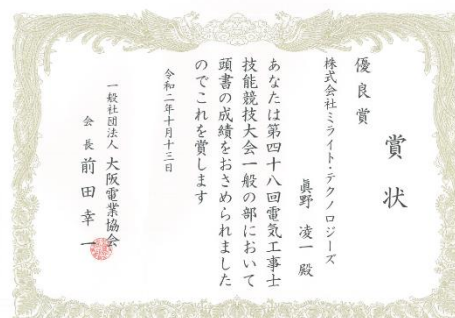 賞状
優良賞
株式会社ミライト・テクノロジーズ
眞野 凌一 殿
あなたは第四十八回電気工事士
技能競技大会一般の部において
頭書の成績をおさめられました
のでこれを賞します
令和二年十月十三日
一般社団法人 大阪電業協会
会長 前田幸一